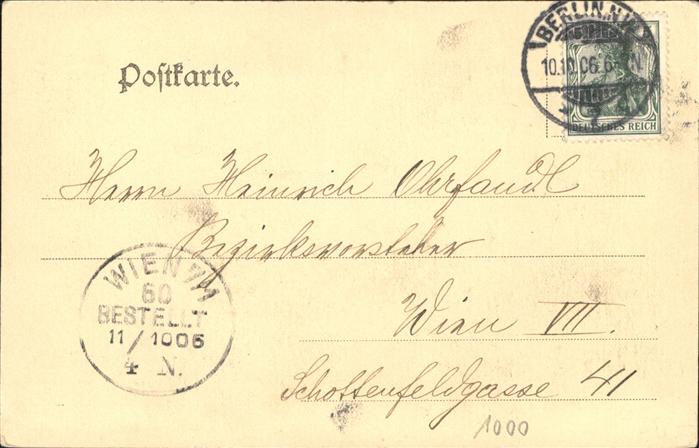 Postkarte.
BERLIN. N.W.
10.10.06. 6-7N.
DEUTSCHES REICH
Herrn Heinrich Ohrfandl
Bezirksvorsteher
Wien VII.
Schottenfeldgasse 41
WIEN 7/1
60
BESTELLT
11/1006
4 N.
1000